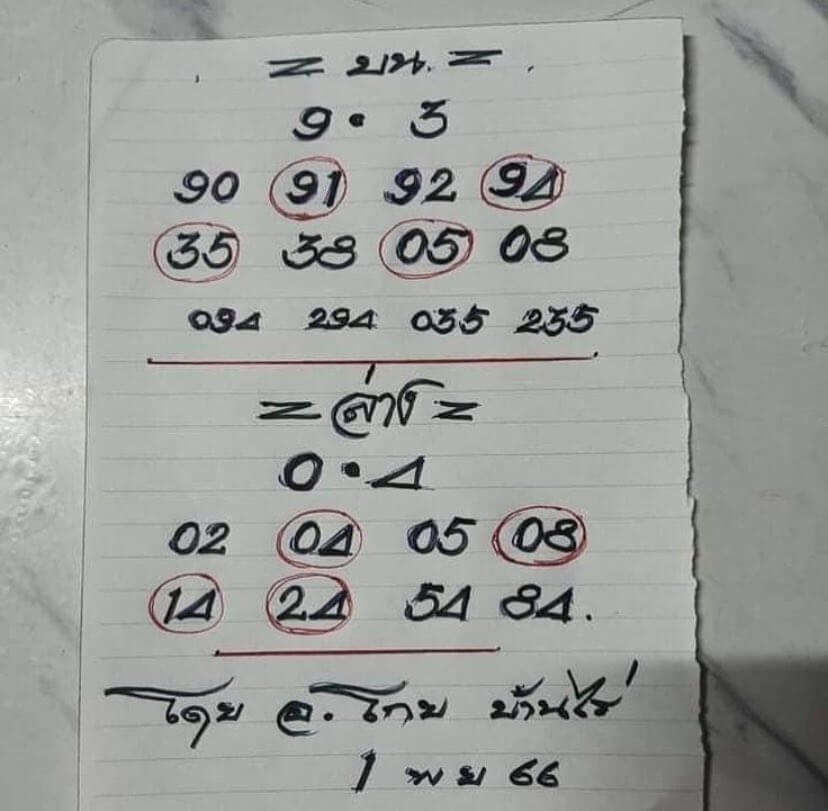 = บน. =
9 • 3
90 91 92 94
35 38 05 08
094 294 035 235
= ล่าง =
0 • 4
02 04 05 08
14 24 54 84.
โดย อ. โกย บ้านไร่
1 พย 66